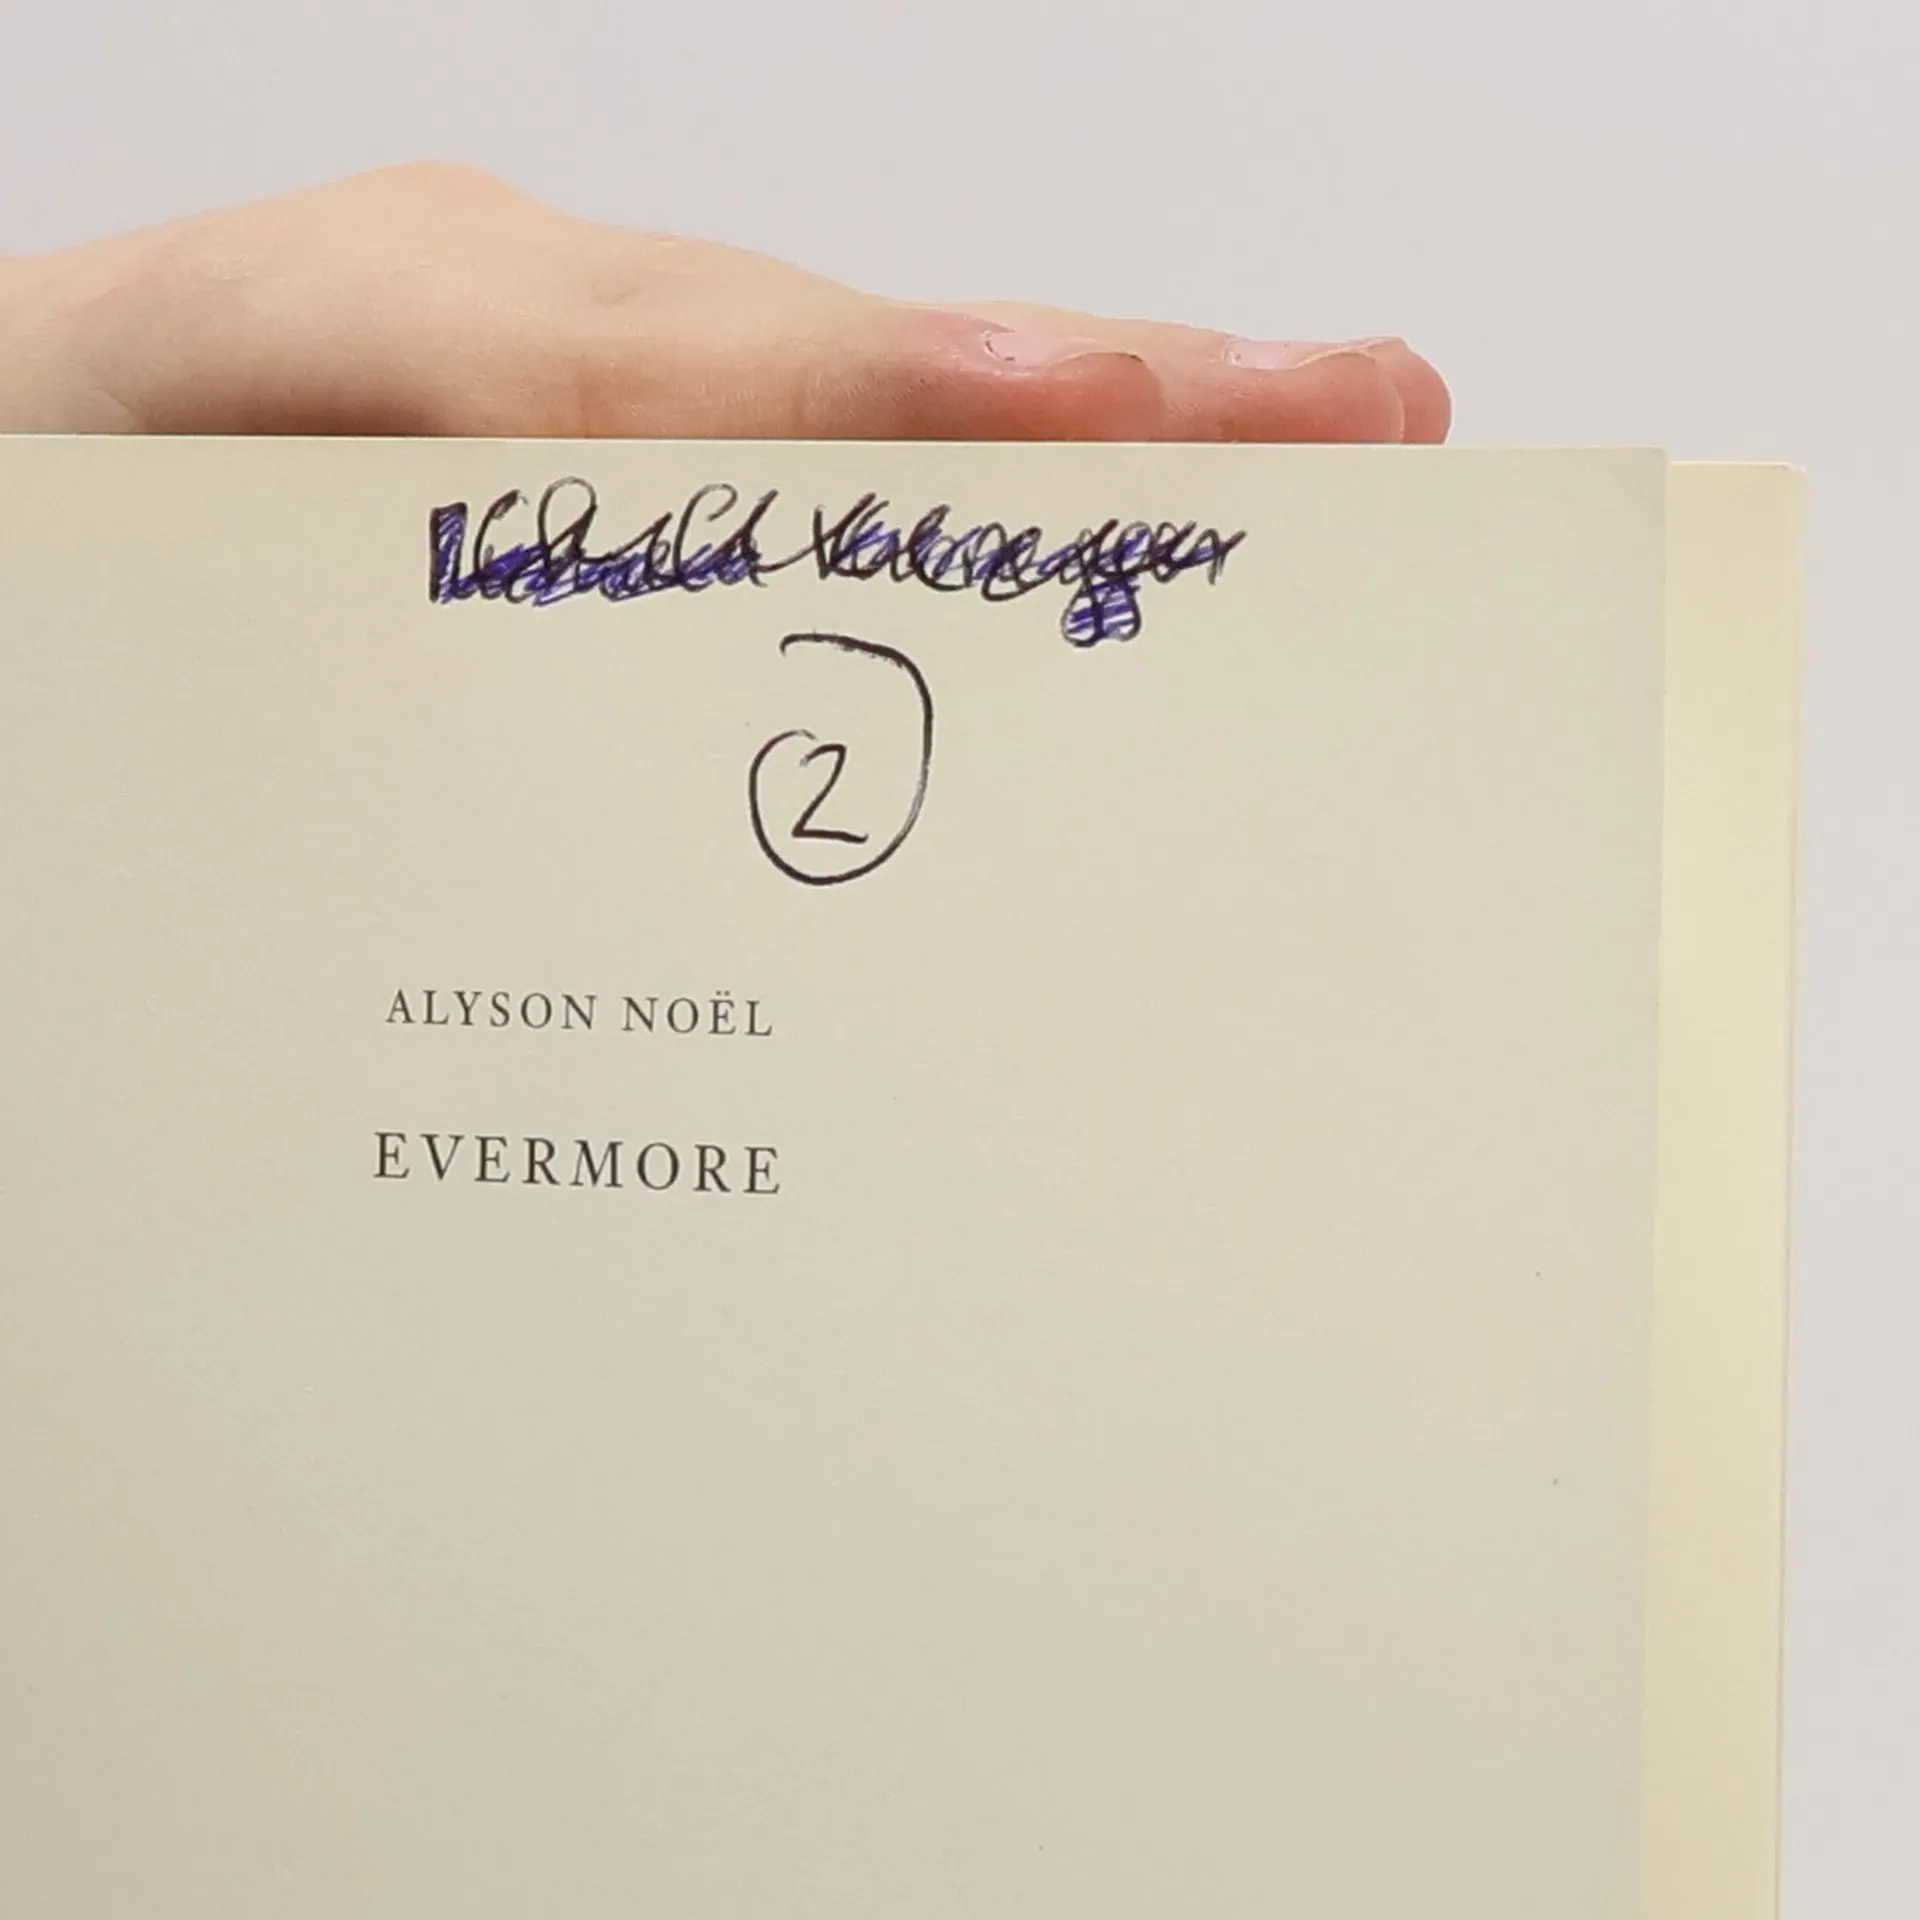 2
ALYSON NOËL
EVERMORE